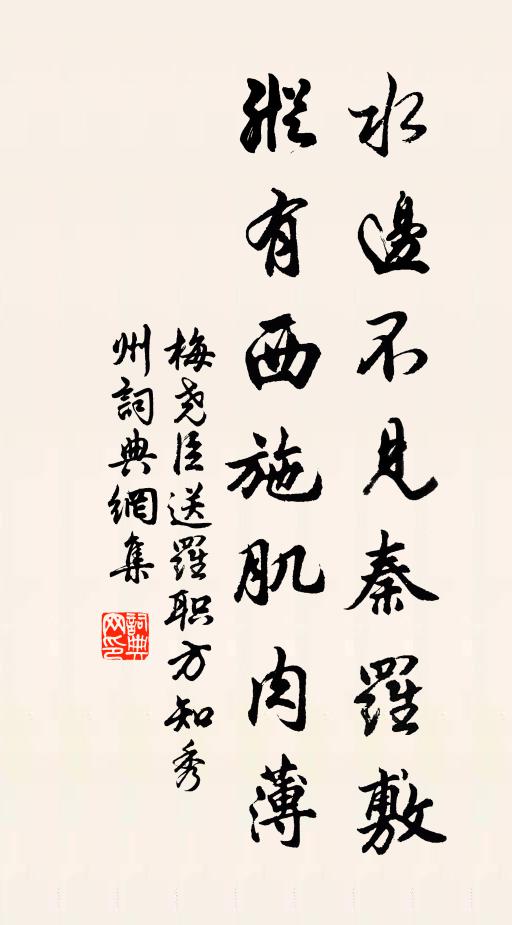 水邊不見秦羅敷
縱有西施肌肉薄
梅尧臣送羅职方知秀
州詞典網集
詞典
网印